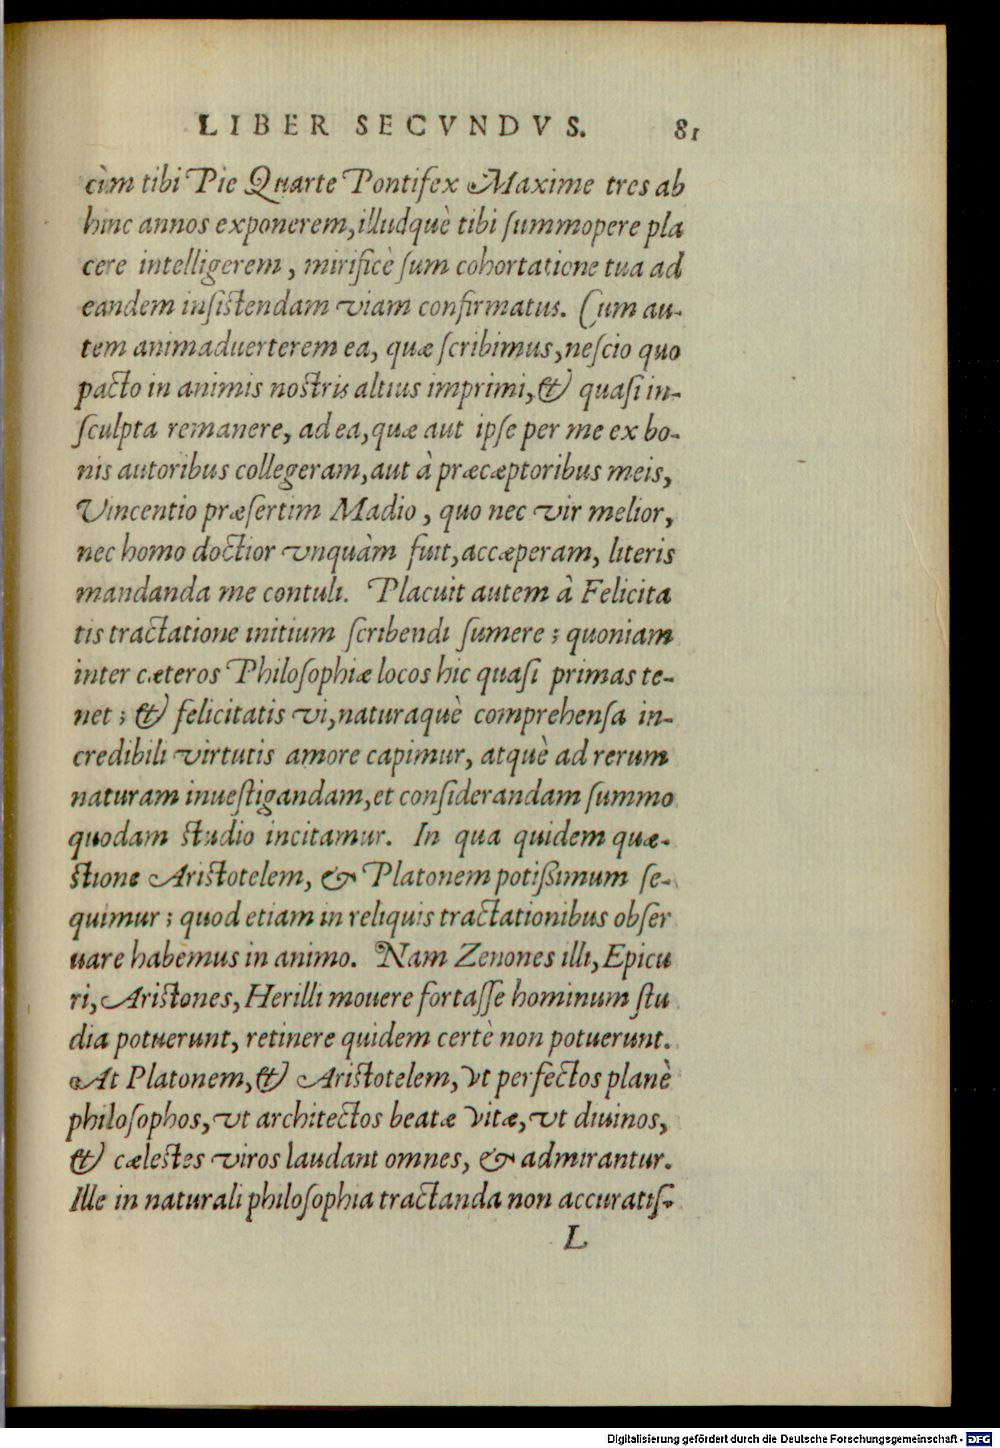 LIBER SECVNDVS. 81
cùm tibi Pie Quarte Pontifex Maxime tres ab
hinc annos exponerem, illudquè tibi ſummopere pla
cere intelligerem, mirificè ſum cohortatione tua ad
eandem inſiſtendam viam confirmatus. Cum au-
tem animaduerterem ea, quæ ſcribimus, neſcio quo
pacto in animis nostris altius imprimi, & quaſi in-
ſculpta remanere, ad ea, quæ aut ipſe per me ex bo-
nis autoribus collegeram, aut à præcæptoribus meis,
Vincentio præſertim Madio, quo nec vir melior,
nec homo doctior vnquàm fuit, accæperam, literis
mandanda me contuli. Placuit autem à Felicita
tis tractatione initium ſcribendi ſumere; quoniam
inter cæteros Philoſophiæ locos hic quaſi primas te-
net; & felicitatis vi, naturaquè comprehenſa in-
credibili virtutis amore capimur, atquè ad rerum
naturam inueſtigandam, et conſiderandam ſummo
quodam studio incitamur. In qua quidem quæ-
stione Aristotelem, & Platonem potißimum ſe-
quimur; quod etiam in reliquis tractationibus obſer
uare habemus in animo. Nam Zenones illi, Epicu
ri, Aristones, Herilli mouere fortaſſe hominum ſtu
dia potuerunt, retinere quidem certè non potuerunt.
At Platonem, & Aristotelem, vt perfectos planè
philoſophos, vt architectos beatæ vitæ, vt diuinos,
& cælestes viros laudant omnes, & admirantur.
Ille in naturali philoſophia tractanda non accuratiſ-
L
Digitalisierung gefördert durch die Deutsche Forschungsgemeinschaft - DFG